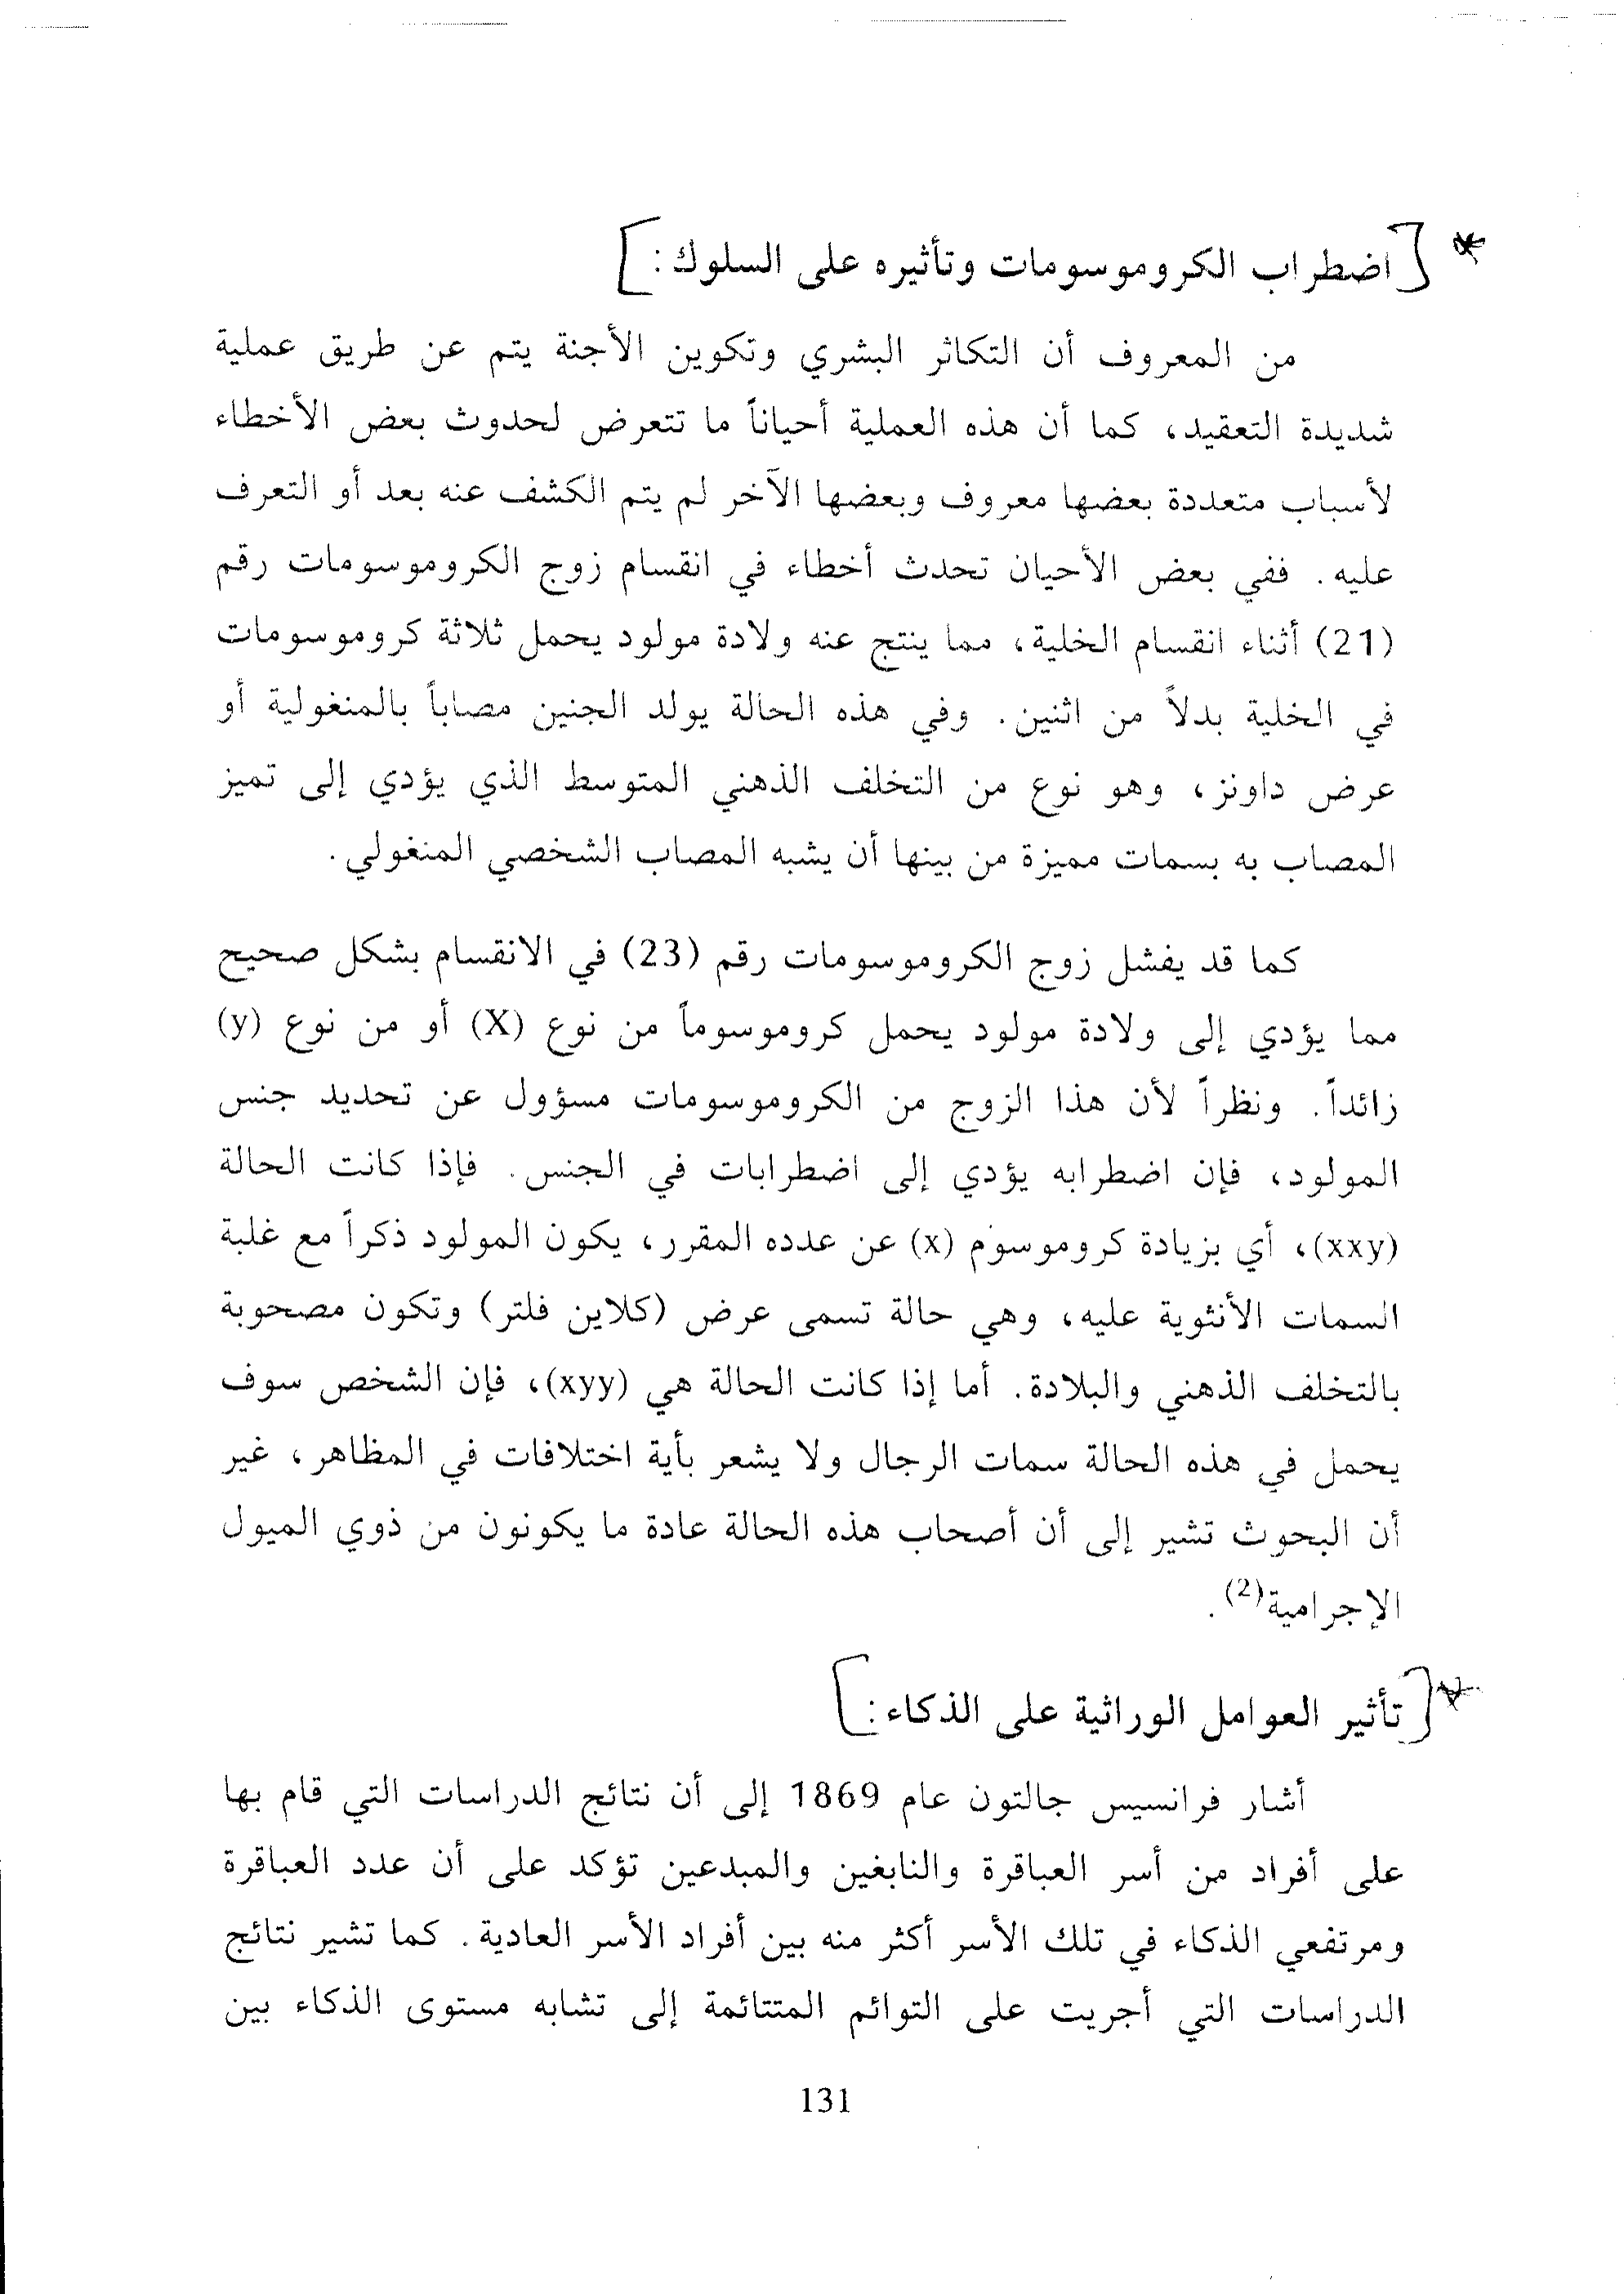 * [اضطراب الكروموسومات وتأثيره على السلوك:]
من المعروف أن التكاثر البشري وتكوين الأجنة يتم عن طريق عملية
شديدة التعقيد، كما أن هذه العملية أحياناً ما تتعرض لحدوث بعض الأخطاء
لأسباب متعددة بعضها معروف وبعضها الآخر لم يتم الكشف عنه بعد أو التعرف
عليه. ففي بعض الأحيان تحدث أخطاء في انقسام زوج الكروموسومات رقم
(21) أثناء انقسام الخلية، مما ينتج عنه ولادة مولود يحمل ثلاثة كروموسومات
في الخلية بدلاً من اثنين. وفي هذه الحالة يولد الجنين مصاباً بالمنغولية أو
عرض داونز، وهو نوع من التخلف الذهني المتوسط الذي يؤدي إلى تميز
المصاب به بسمات مميزة من بينها أن يشبه المصاب الشخصي المنغولي.
كما قد يفشل زوج الكروموسومات رقم (23) في الانقسام بشكل صحيح
مما يؤدي إلى ولادة مولود يحمل كروموسوماً من نوع (X) أو من نوع (y)
زائداً. ونظراً لأن هذا الزوج من الكروموسومات مسؤول عن تحديد جنس
المولود، فإن اضطرابه يؤدي إلى اضطرابات في الجنس. فإذا كانت الحالة
(xxy)، أي بزيادة كروموسوم (x) عن عدده المقرر، يكون المولود ذكراً مع غلبة
السمات الأنثوية عليه، وهي حالة تسمى عرض (كلاين فلتر) وتكون مصحوبة
بالتخلف الذهني والبلادة. أما إذا كانت الحالة هي (xyy)، فإن الشخص سوف
يحمل في هذه الحالة سمات الرجال ولا يشعر بأية اختلافات في المظاهر، غير
أن البحوث تشير إلى أن أصحاب هذه الحالة عادة ما يكونون من ذوي الميول
الإجرامية(2).
* [تأثير العوامل الوراثية على الذكاء:]
أشار فرانسيس جالتون عام 1869 إلى أن نتائج الدراسات التي قام بها
على أفراد من أسر العباقرة والنابغين والمبدعين تؤكد على أن عدد العباقرة
ومرتفعي الذكاء في تلك الأسر أكثر منه بين أفراد الأسر العادية. كما تشير نتائج
الدراسات التي أجريت على التوائم المتتائمة إلى تشابه مستوى الذكاء بين
131